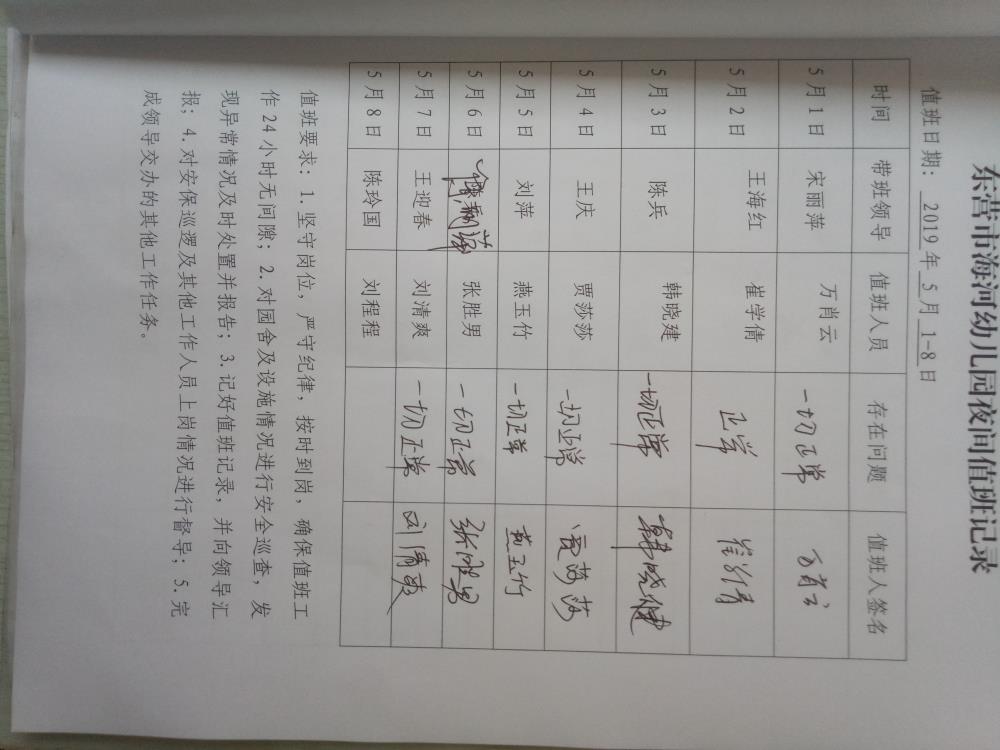 东营市海河幼儿园夜间值班记录
值班日期：2019年5月1-8日
时间 带班领导 值班人员 存在问题 值班人签名
5月1日 宋丽萍 万肖云 一切正常 万肖云
5月2日 王海红 崔学倩 正常 崔学倩
5月3日 陈兵 韩晓建 一切正常 韩晓建
5月4日 王庆 贾莎莎 一切正常 贾莎莎
5月5日 刘萍 燕玉竹 一切正常 燕玉竹
5月6日 张胜男 一切正常 张胜男
5月7日 王迎春 刘清爽 一切正常 刘清爽
5月8日 陈玲国 刘程程
值班要求：1.坚守岗位，严守纪律，按时到岗，确保值班工
作24小时无间隙；2.对园舍及设施情况进行安全巡查，发
现异常情况及时处置并报告；3.记好值班记录，并向领导汇
报；4.对安保巡逻及其他工作人员上岗情况进行督导；5.完
成领导交办的其他工作任务。